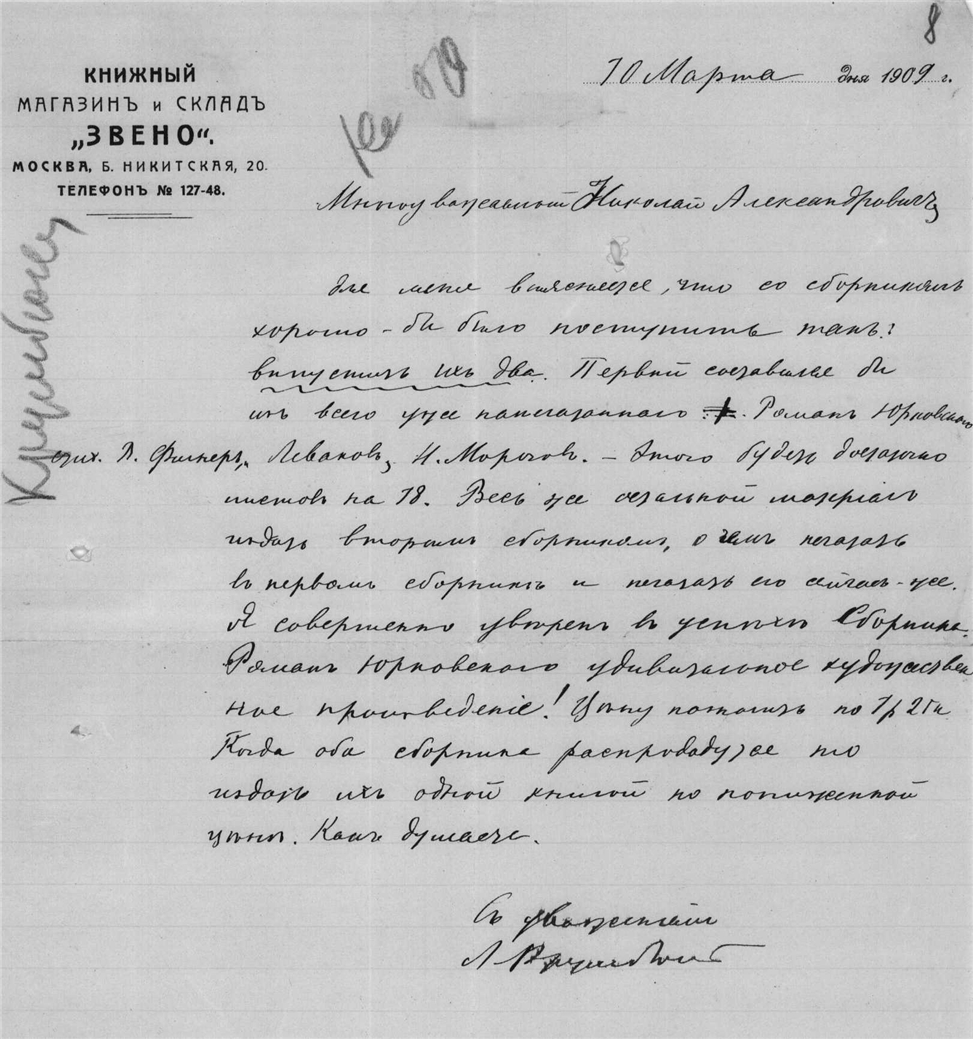 8
КНИЖНЫЙ
МАГАЗИНЪ и СКЛАДЪ
„ЗВЕНО“.
МОСКВА, Б. НИКИТСКАЯ, 20.
ТЕЛЕФОНЪ № 127-48.
10 Марта дня 1909 г.
Многоуважаемый Николай Александровичъ,
для меня выясняется, что со сборникомъ
хорошо-бы было поступить такъ:
выпустить ихъ два. Первый составился бы
изъ всего уже Романъ Юрковскаго
стих. В. Фигнеръ, Н. Морозов. – Этого будетъ достаточно
листовъ на 18. Весь же остальной матеріалъ
издать вторымъ сборникомъ, о чемъ печатать
въ первомъ сборникѣ и печатать его сейчасъ-же.
Я совершенно увѣренъ въ успѣхѣ Сборника.
Романъ Юрковского удивительное художествен
ное произведеніе! Цѣну назначить по 1 р 25 к.
Когда оба сборника распродадутся то
издать ихъ одной книгой по пониженной
цѣнѣ. Какъ думаете.
Съ уваженіемъ
Л